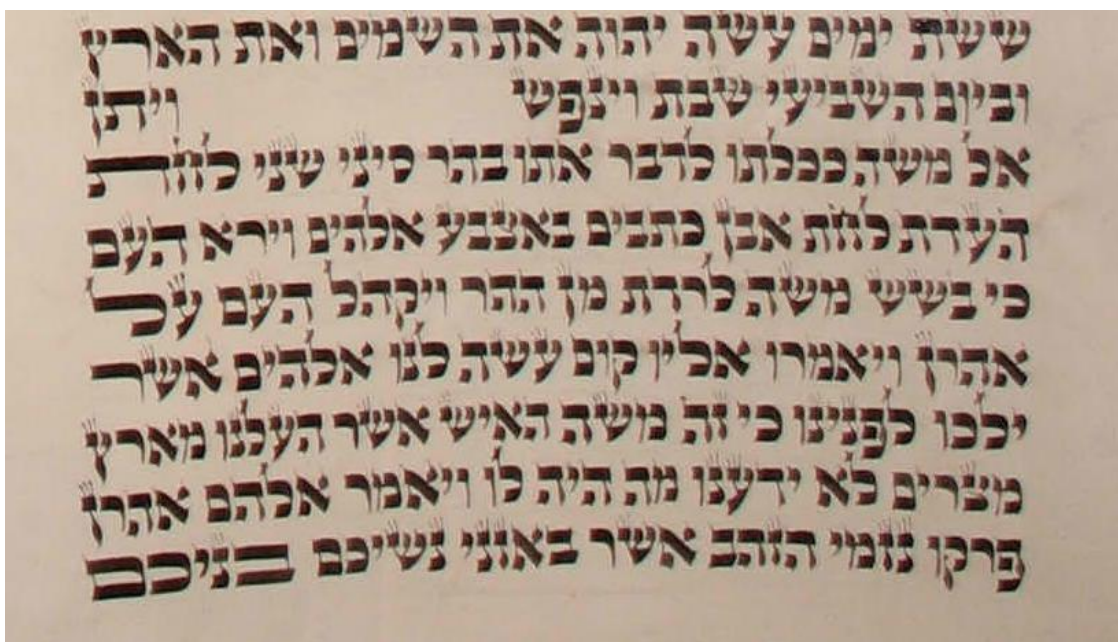 ששת ימים עשה יהוה את השמים ואת הארץ
וביום השביעי שבת וינפש ויתן
אל משה ככלתו לדבר אתו בהר סיני שני לחת
העדת לחת אבן כתבים באצבע אלהים וירא העם
כי בשש משה לרדת מן ההר ויקהל העם על
אהרן ויאמרו אליו קום עשה לנו אלהים אשר
ילכו לפנינו כי זה משה האיש אשר העלנו מארץ
מצרים לא ידענו מה היה לו ויאמר אלהם אהרן
פרקו נזמי הזהב אשר באזני נשיכם בניכם